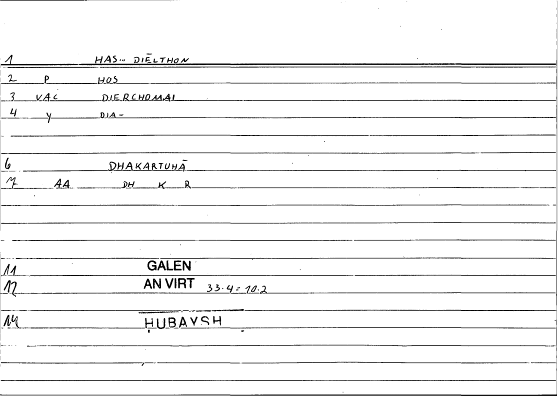 1 HAS... DIĒLTHON
2 P HOS
3 VAC DIERCHOMAI
4 Y DIA-
6 DHAKARTUHĀ
7 AA DH K R
11 GALEN
12 AN VIRT 33.4=10.2
14 HUBAYSH